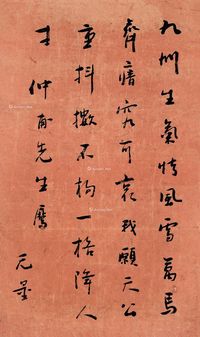 九州生氣恃風雷萬馬
齊瘖究可哀我願天公
重抖擻不拘一格降人
才 仲甫先生屬
元